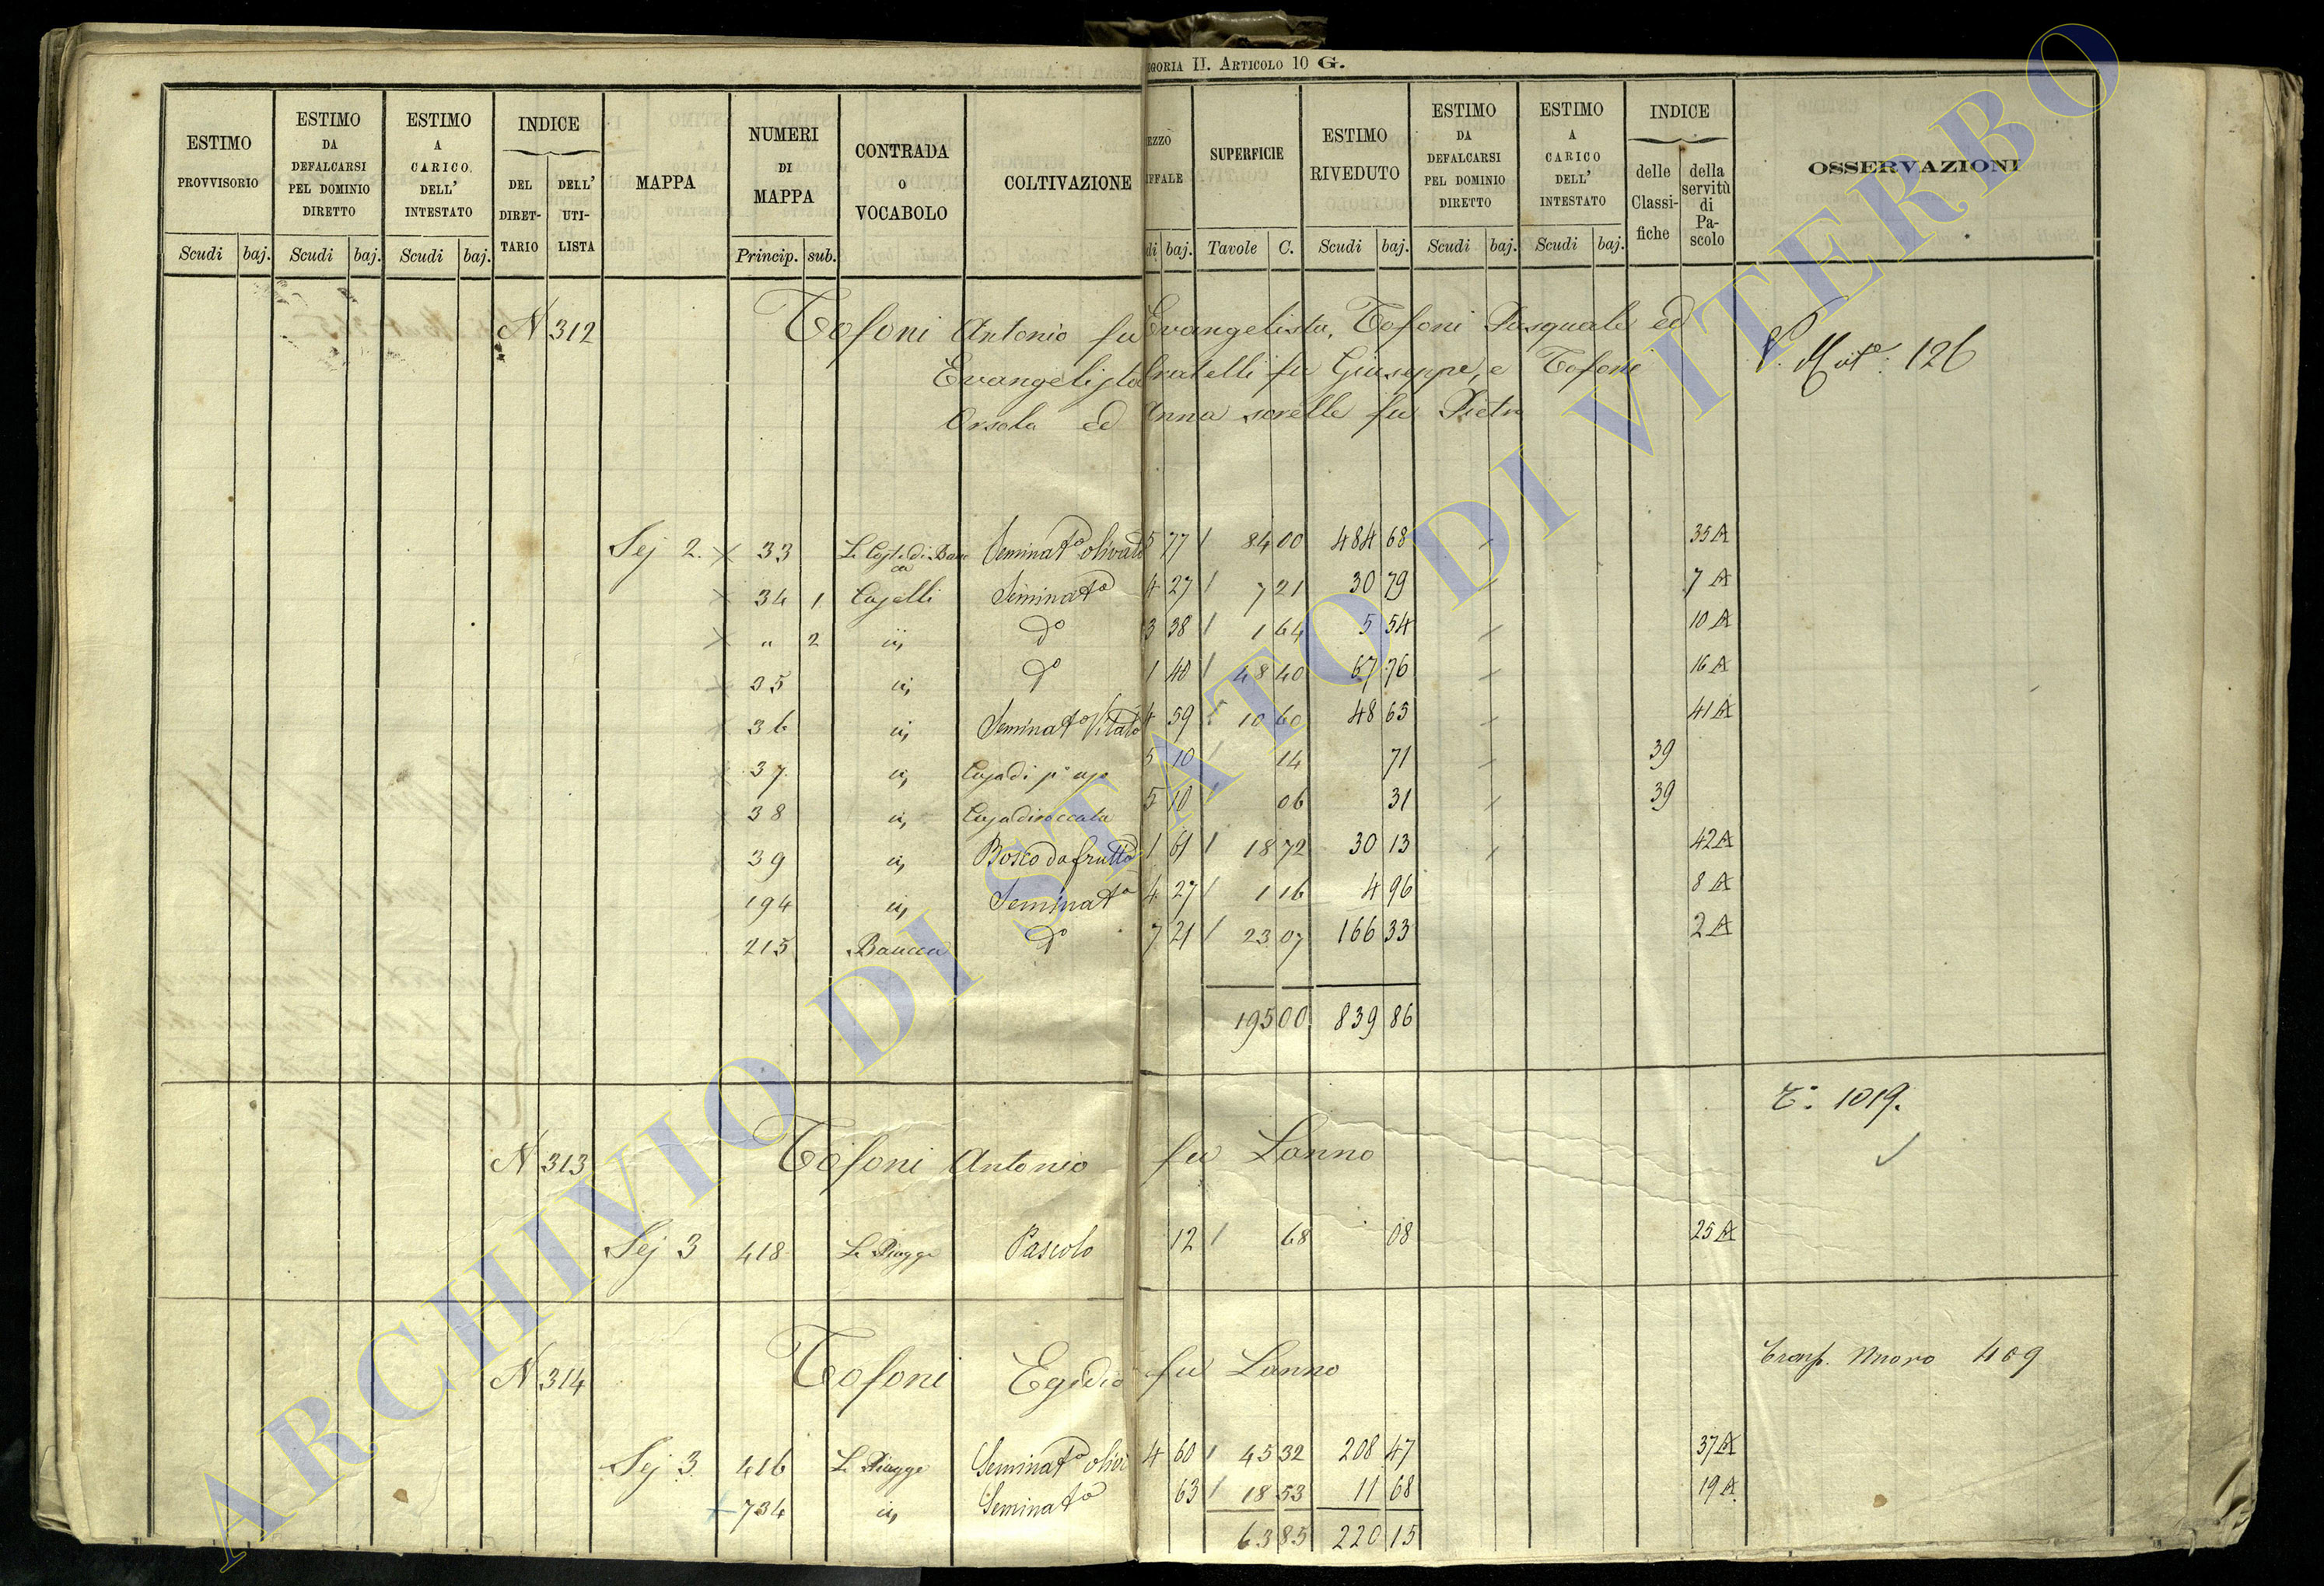 GORIA II. ARTICOLO 10 G.
ESTIMO PROVVISORIO
ESTIMO DA DEFALCARSI PEL DOMINIO DIRETTO
ESTIMO A CARICO DELL' INTESTATO
INDICE
DEL DIRETTARIO
DELL' UTILISTA
MAPPA
NUMERI DI MAPPA
CONTRADA O VOCABOLO
COLTIVAZIONE
EZZO
FFALE
SUPERFICIE
ESTIMO RIVEDUTO
ESTIMO DA DEFALCARSI PEL DOMINIO DIRETTO
ESTIMO A CARICO DELL' INTESTATO
INDICE
delle Classifiche
della servitù di Pascolo
OSSERVAZIONI
Scudi baj. Scudi baj. Scudi baj. Princip. sub. di baj. Tavole C. Scudi baj. Scudi baj. Scudi baj.
N 312 Tofoni Antonio fu Evangelista, Tofoni Pasquale ed
Evangelista fratelli fu Giuseppe, e Tofoni 126
Orsola ed Anna sorelle fu Pietro
Sez 2. 33 Seminato olivato 5 77 84 00 484 68 35 A
34 1 Caselli Seminato 4 27 7 21 30 79 7 A
" 2 " do 3 38 1 64 5 54 10 A
35 " do 1 40 48 40 67 76 16 A
36 " Seminato Vitato 4 59 10 60 48 65 41 A
37 " Casa di 5 10 14 71 39
38 " 5 10 06 31 39
39 " Bosco da frutto 1 61 18 72 30 13 42 A
194 " Seminato 4 27 1 16 4 96 8 A
215 Baucca do 7 21 23 07 166 33 2 A
195 00 839 86
T. 1019.
N 313 Tofoni Antonio fu Lanno
Sez 3 418 Le Piagge Pascolo 12 68 08 25 A
N 314 Tofoni Egidio fu Lanno Trasp. Nuovo 409
Sez 3. 416 Le Piagge Seminato oliv 4 60 45 32 208 47 37 A
734 " Seminato 63 18 53 11 68 19 A
63 85 220 15
ARCHIVIO DI STATO DI VITERBO